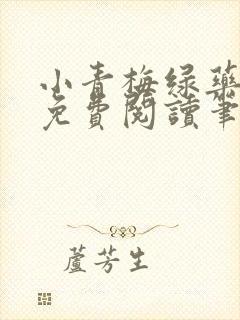 小青梅绿药
免費閱讀筆
蘆芳生